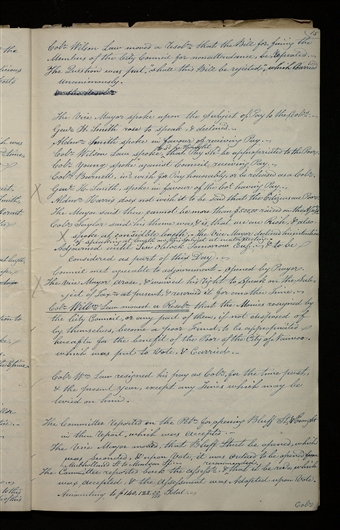 15
Colr. Wilson Law moved a Resoln. that the Bill for fining the
Members of the City Council for nonattendance, be Repealed.
The Question was put, "shall this Bill be rejected", which carried
unanimously.
The Vice Mayor spoke upon the subject of Pay to the Aldn.
Genl. H. Smith rose to speak & declined.
Aldn. Smith spoke in favour of receiving Pay.
Colr. Wilson Law spoke, that Pay be appropriated to the Poor.
Colr. Young spoke against Council receiving Pay.
Colr. Barnett, wd. wish for Pay honorably, or be released as a Colr.
Genl. H. Smith spoke in favour of the Cost having Pay.
Aldn. Harris does not wish it to be said that the Citizens are Poor.
The Mayor said there cannot be more than $ raised on this
Colr. Taylor said his mind
spoke at considerable length. The Vice Mayor
Adjourned until Six o'clock Tomorrow Eveg., & to be
considered as part of this Day.
Council met agreeable to adjournment. Opened by Prayer.
The Vice Mayor arose, & waived his Right to speak on the subject
of Pay at present, & reserved it for another time.
Colr. Wilson Law moved a Resoln. that the Monies resigned by
the City Council, or any part of them, if not disposed of
by themselves, become a poor Fund, to be appropriated
hereafter for the benefit of the Poor of the City of Nauvoo
which was put to Vote, & Carried.
Colr. Wm. Law resigned his pay as Colr. for the time past,
& the present Year, except any Fines which may be
levied on him.
The Committee reported on the Petn. for opening Bluff St. & brought
in their Report, which was accepted.
The Vice Mayor moved, that Bluff Street be opened, which
was seconded, & upon Vote, it was ordered to be opened from
Mulholland St. to
The Committee reported back the Assessr. &
was accepted & the Assessment was Adopted upon Vote.
Amounting to Total
Colr.